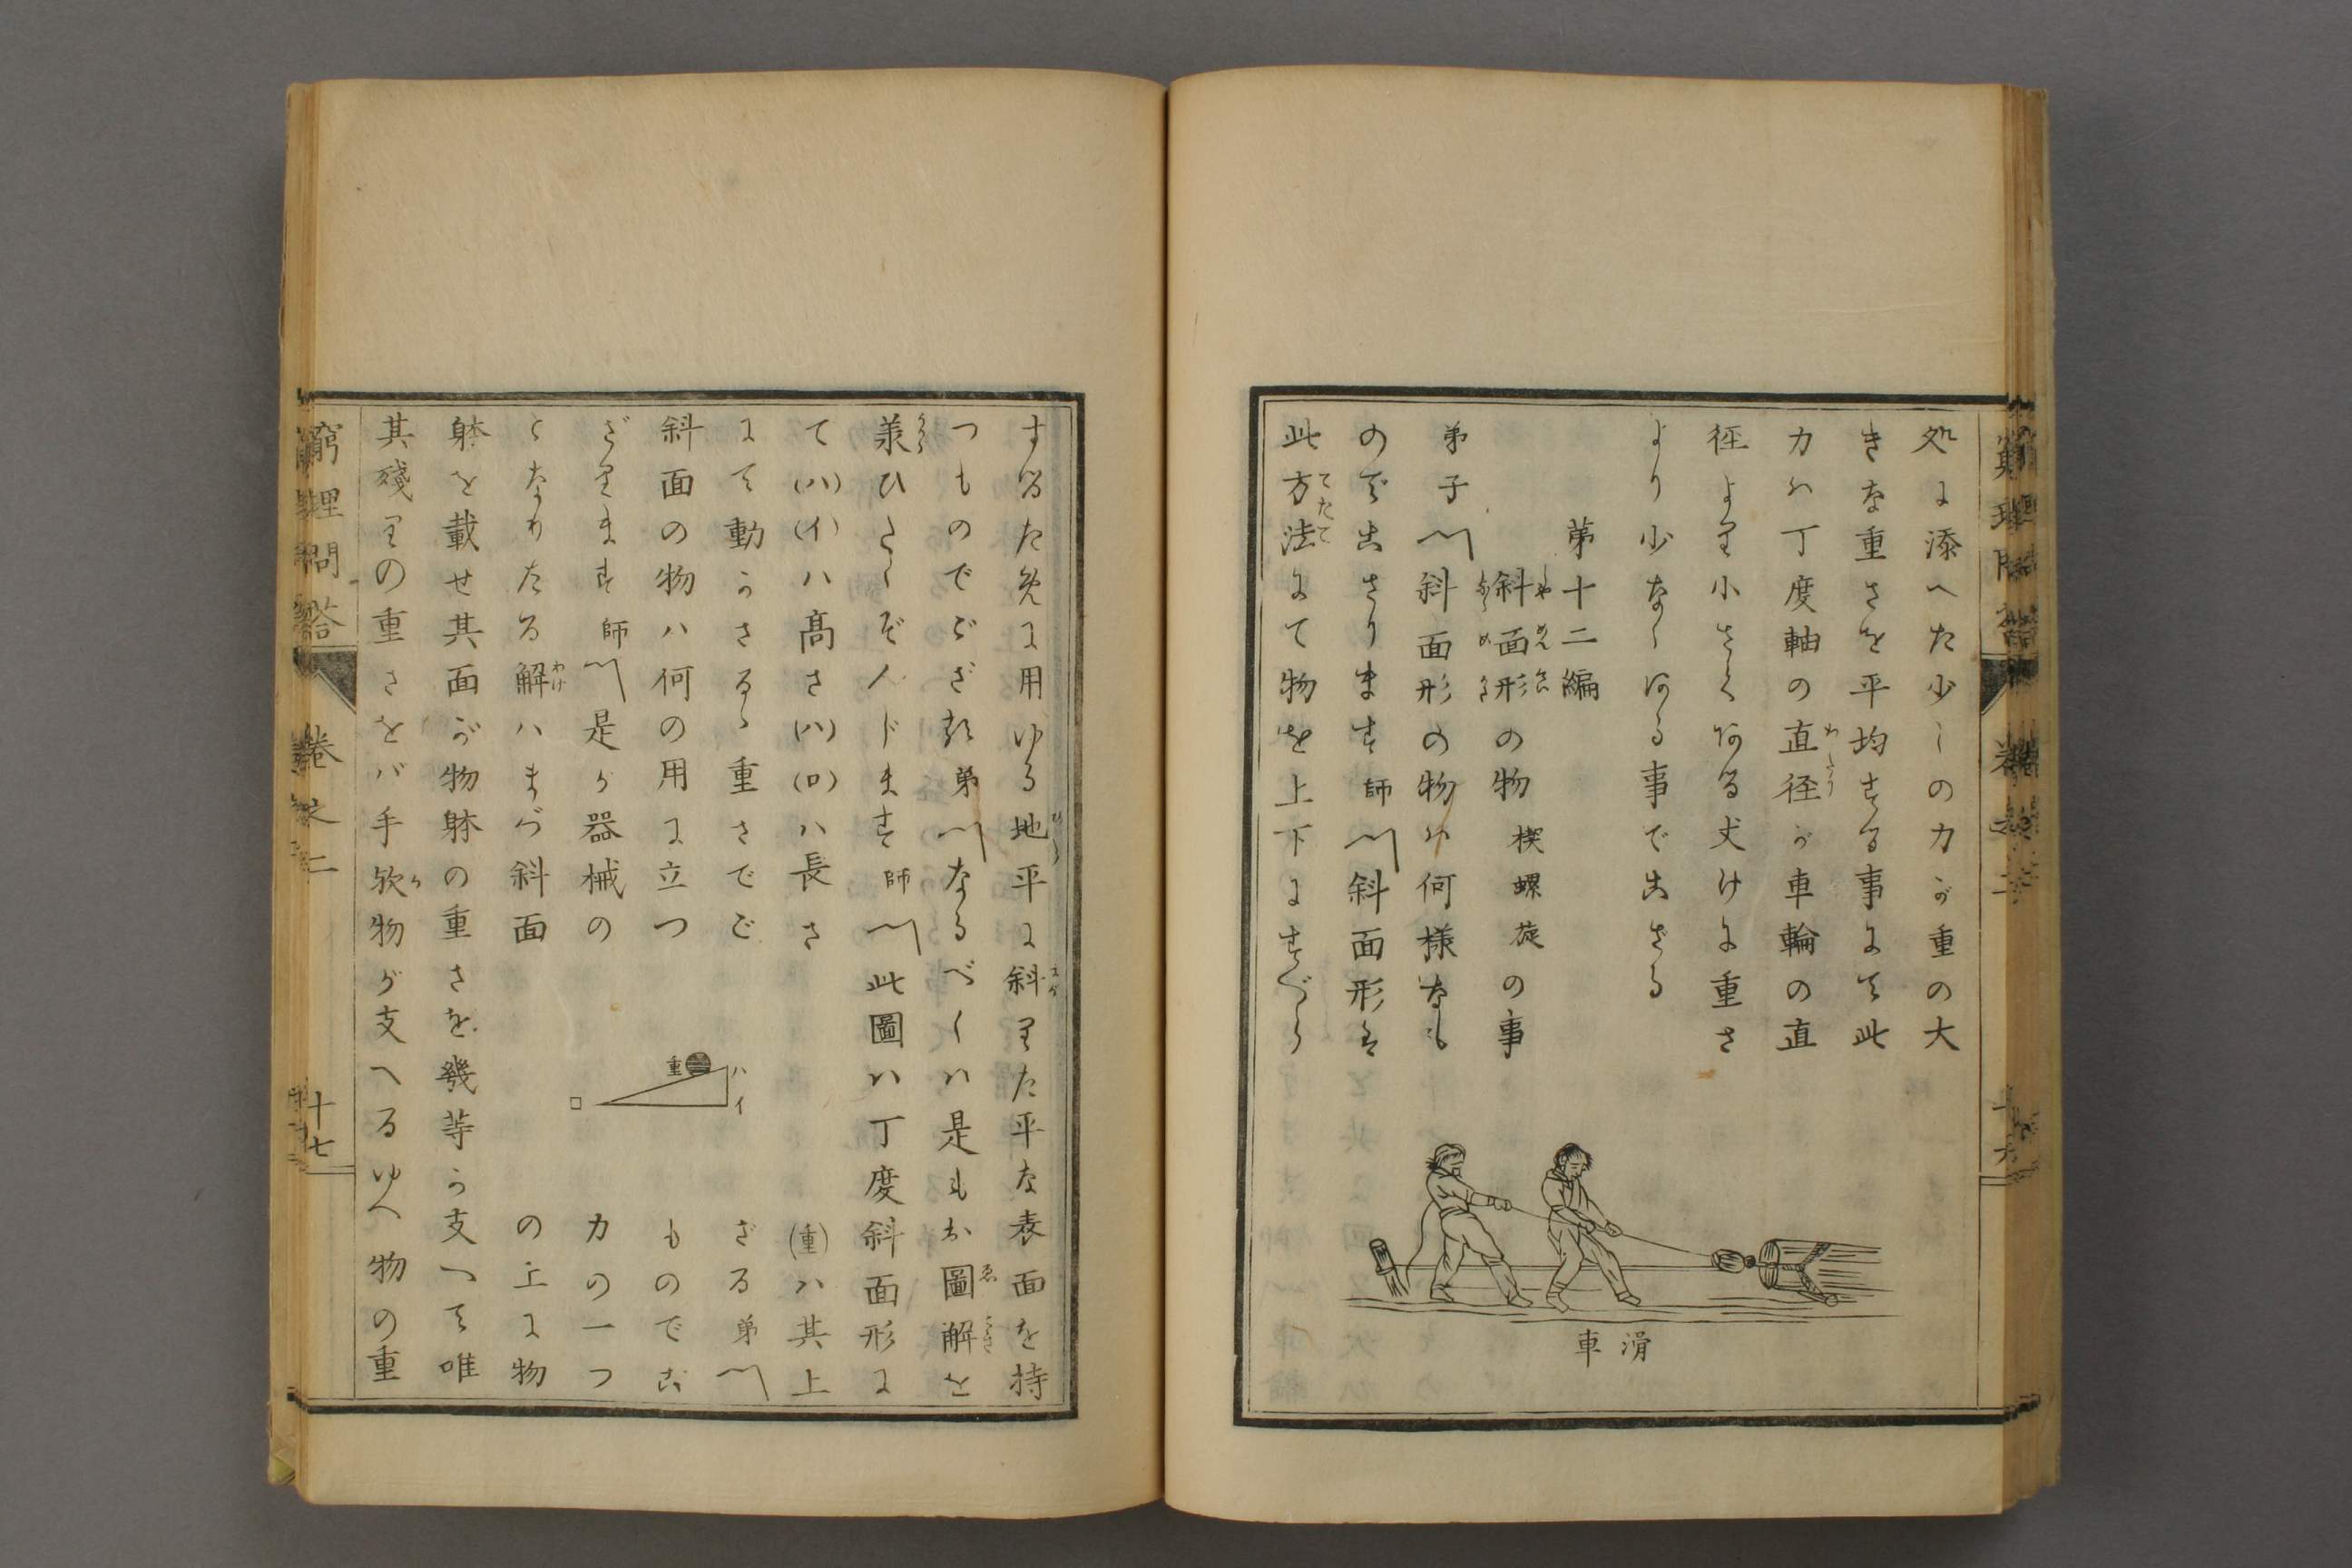 処に添へた少しの力が重の大
きな重さを平均する事にて此
力ハ丁度軸の直径が車輪の直
径より小さくなる丈けに重さ
より少なくなる事でござる
第十二編
斜面形の物 楔 螺旋 の事
弟子 斜面形の物ハ何様なも
のでござります 師 斜面形は
此方法にて物を上下にすべら
滑車
するために用ゆる地平に斜りた平な表面を持
つものでござる 弟 なるべくハ是もお圖解を
羕ひたくぞんじます 師 此圖ハ丁度斜面形に
て(ハ)(イ)ハ高さ(ハ)(ロ)ハ長さ(重)ハ其上
にて動かさるゝ重さでござる 弟
斜面の物ハ何の用に立つものでご
ざります 師 是が器械の力の一つ
となりたる解ハまづ斜面の上に物
躰を載せ其面が物躰の重さを幾等か支へて唯
其殘りの重さをバ手欤物が支へるゆへ物の重
重
ハ
イ
ロ
窮理問答 卷之二 十七